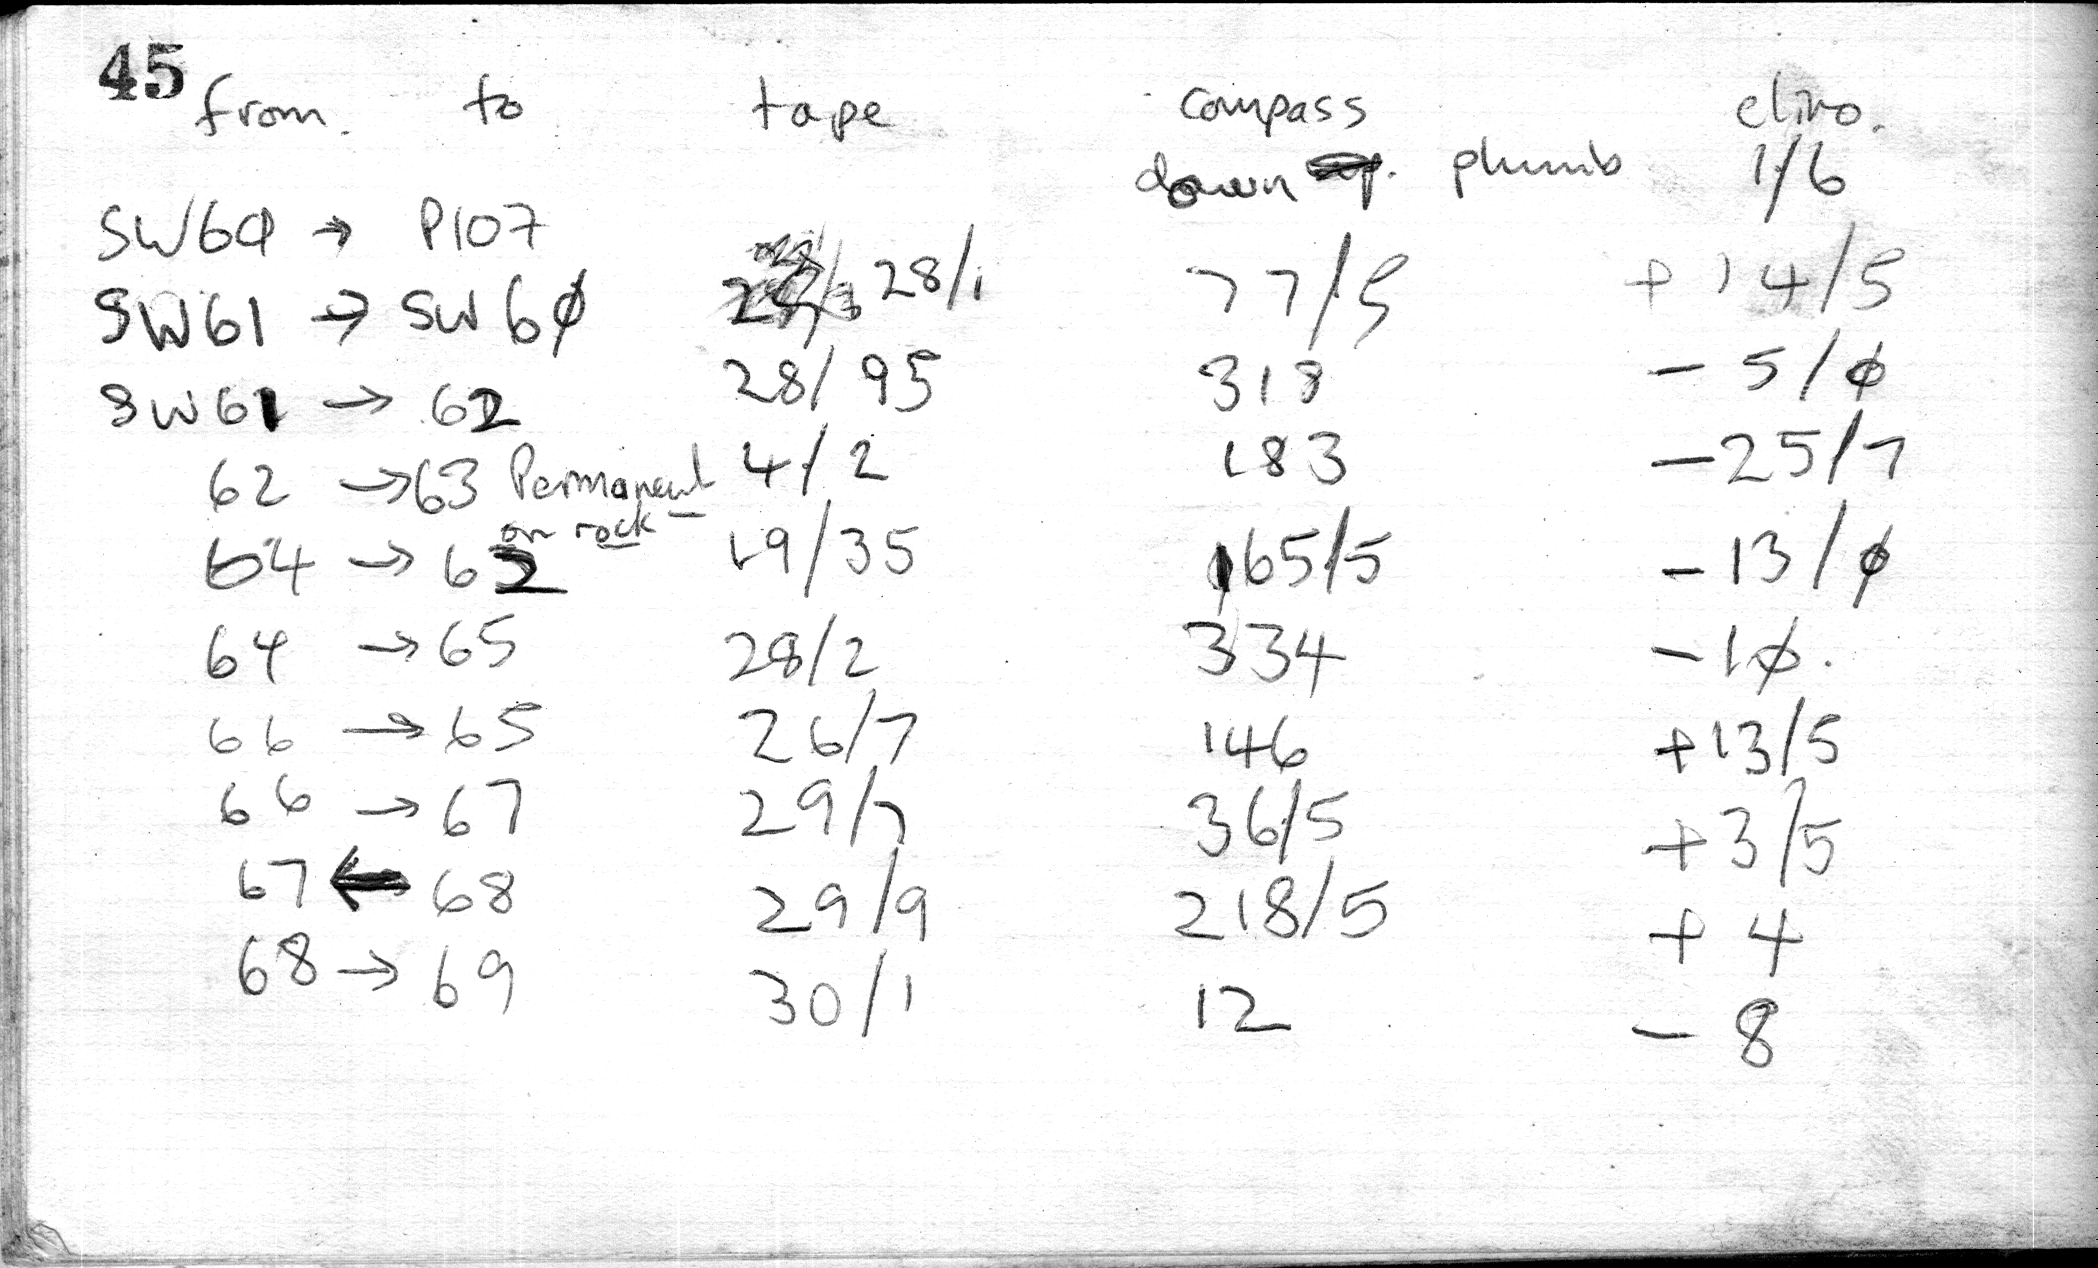 45
from. to tape compass clino.
SW60 → P107 down plumb 1/6
SW61 → SW6ϕ 28/1 77/5 +14/5
SW61 → 62 28/95 318 -5/ϕ
62 → 63 Permanent on rock 4/2 183 -25/7
64 → 62 19/35 165/5 -13/ϕ
64 → 65 28/2 334 -1ϕ.
66 → 65 26/7 146 +13/5
66 → 67 29/7 36/5 +3/5
67 ← 68 29/9 218/5 +4
68 → 69 30/1 12 -8